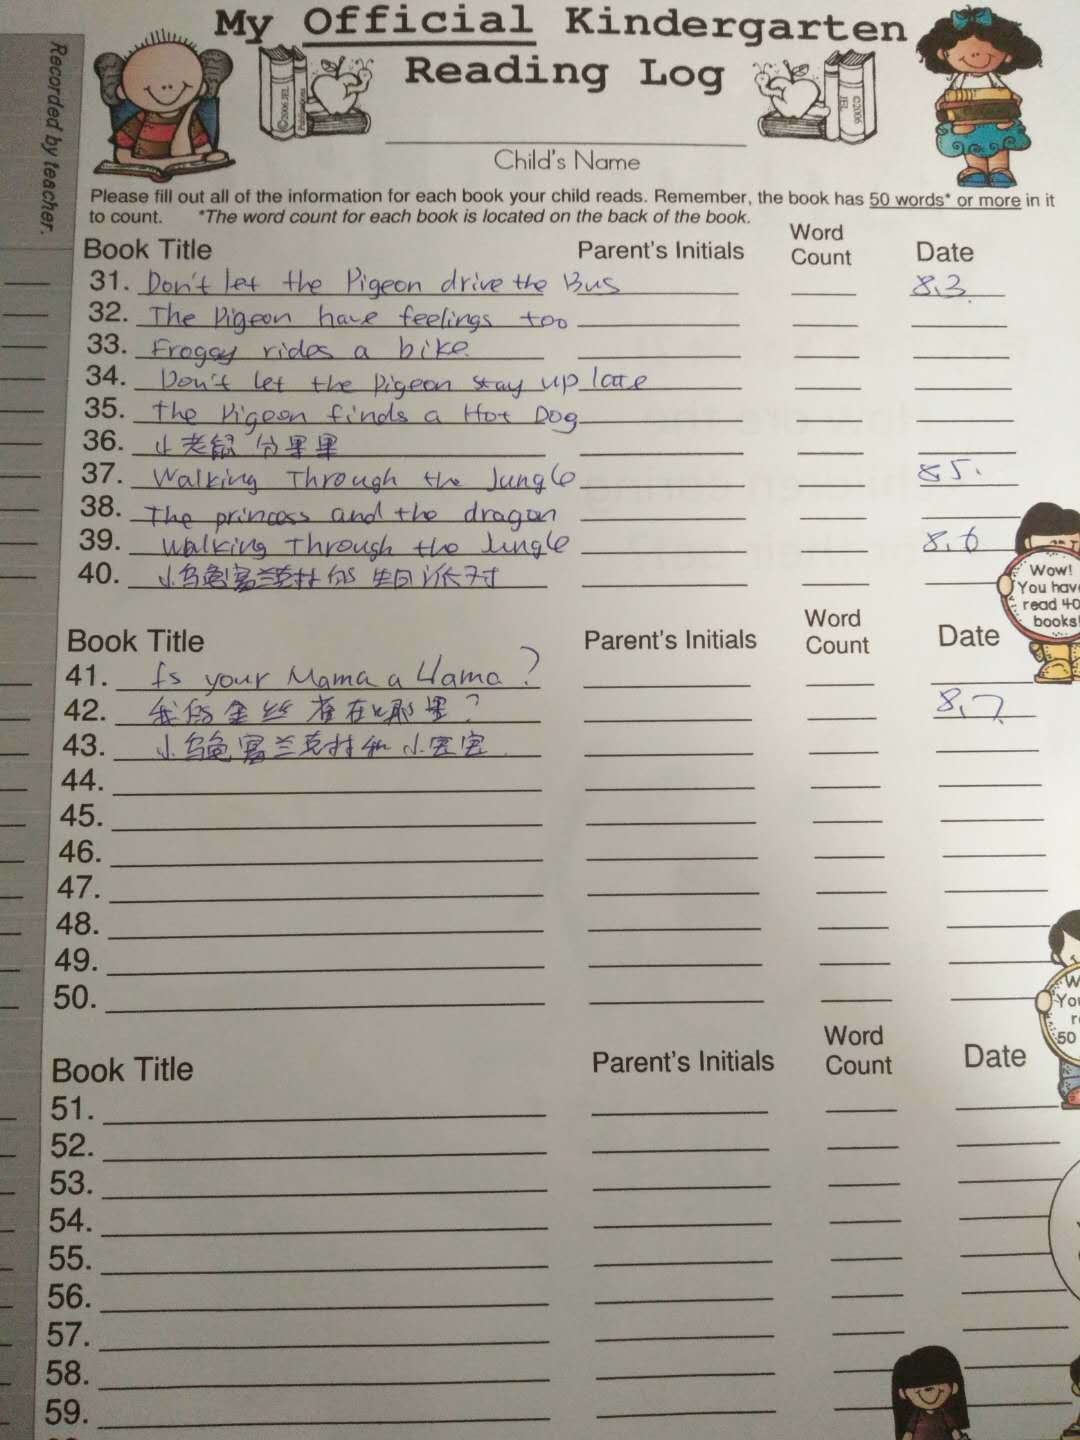 Recorded by teacher.
My Official Kindergarten
Reading Log
©2006 JEL
Publications
©2006
JEL
Child's Name
Please fill out all of the information for each book your child reads. Remember, the book has 50 words* or more in it
to count. *The word count for each book is located on the back of the book.
Book Title Parent's Initials Word Count Date
31. Don't let the Pigeon drive the Bus 8.3
32. The Pigeon have feelings too
33. Froggy rides a bike.
34. Don't let the Pigeon stay up late
35. The Pigeon finds a Hot Dog
36. 小老鼠分果果
37. Walking Through the Jungle 8.5.
38. The princess and the dragon
39. Walking Through the Jungle 8.6
40. 小乌龟富兰克林的生日派对
Wow!
You have
read 40
books!
Book Title Parent's Initials Word Count Date
41. Is your Mama a Llama?
42. 我的金丝雀在哪里? 8.7.
43. 小乌龟富兰克林和小宝宝
44.
45.
46.
47.
48.
49.
50.
W
You
r
50
Book Title Parent's Initials Word Count Date
51.
52.
53.
54.
55.
56.
57.
58.
59.